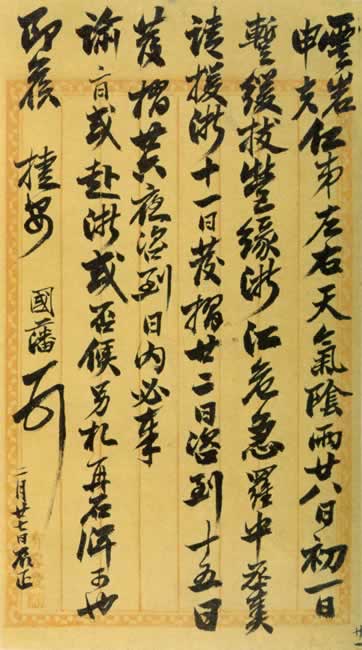 雲岩申夫仁弟左右天氣陰雨廿八日初一日
暫緩拔營緣浙江危急羅中丞奏
請援浙十一日發摺廿二日咨到十五日
發摺廿六夜咨到日內必奉
諭旨或赴浙或否候另札再可也
即候 捷安 國藩頓
二月廿七日辰正